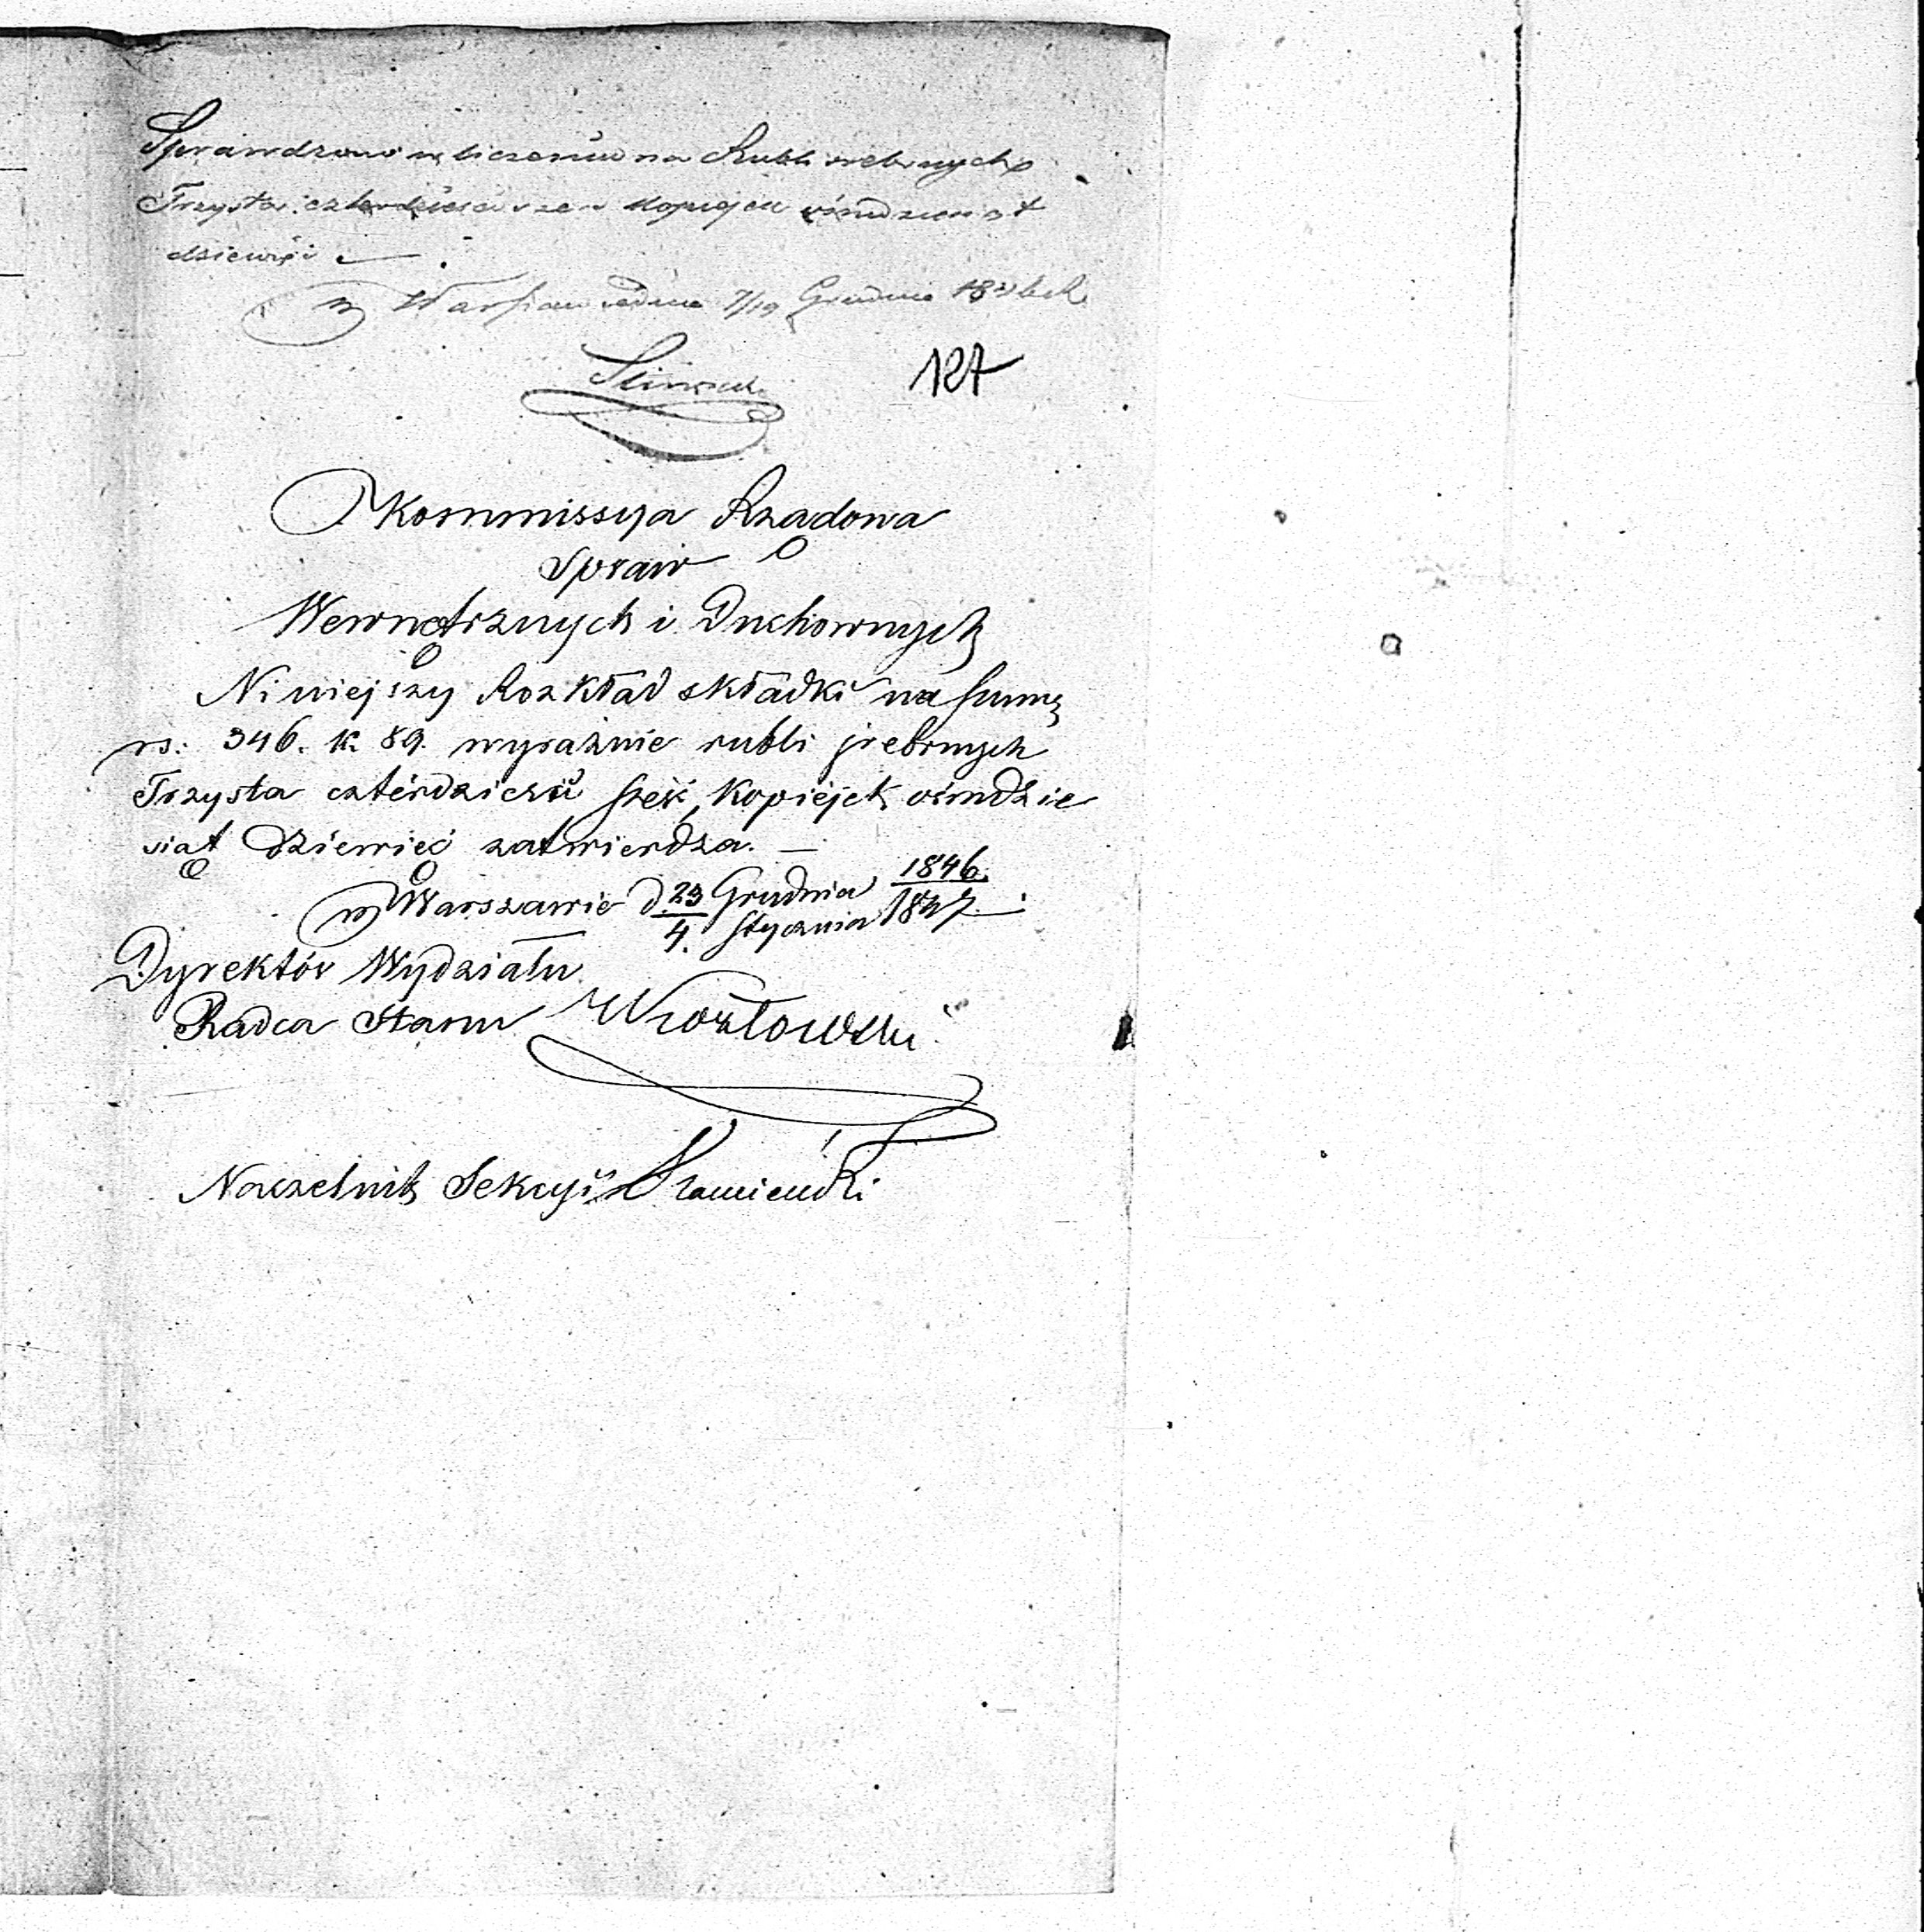 Sprawdzono w liczeniu na Rubli srebrnych
Trzysta czterdzieści sześć kopiejek ośmdziesiąt
dziewięć —
w Warszawie dnia 7/19 Grudnia 1846 R.
127
Kommissya Rządowa
Spraw
Wewnętrznych i Duchownych
Niniejszy Rozkład składki na summę
rs: 346. k. 89. wyraźnie rubli srebrnych
Trzysta czterdzieści sześć, kopiejek ośmdzie
siąt dziewięć zatwierdza. —
w Warszawie d. 23 Grudnia 1846.
4. Stycznia 1847.
Dyrektór Wydziału
Radca Stanu
Naczelnik Sekcyi